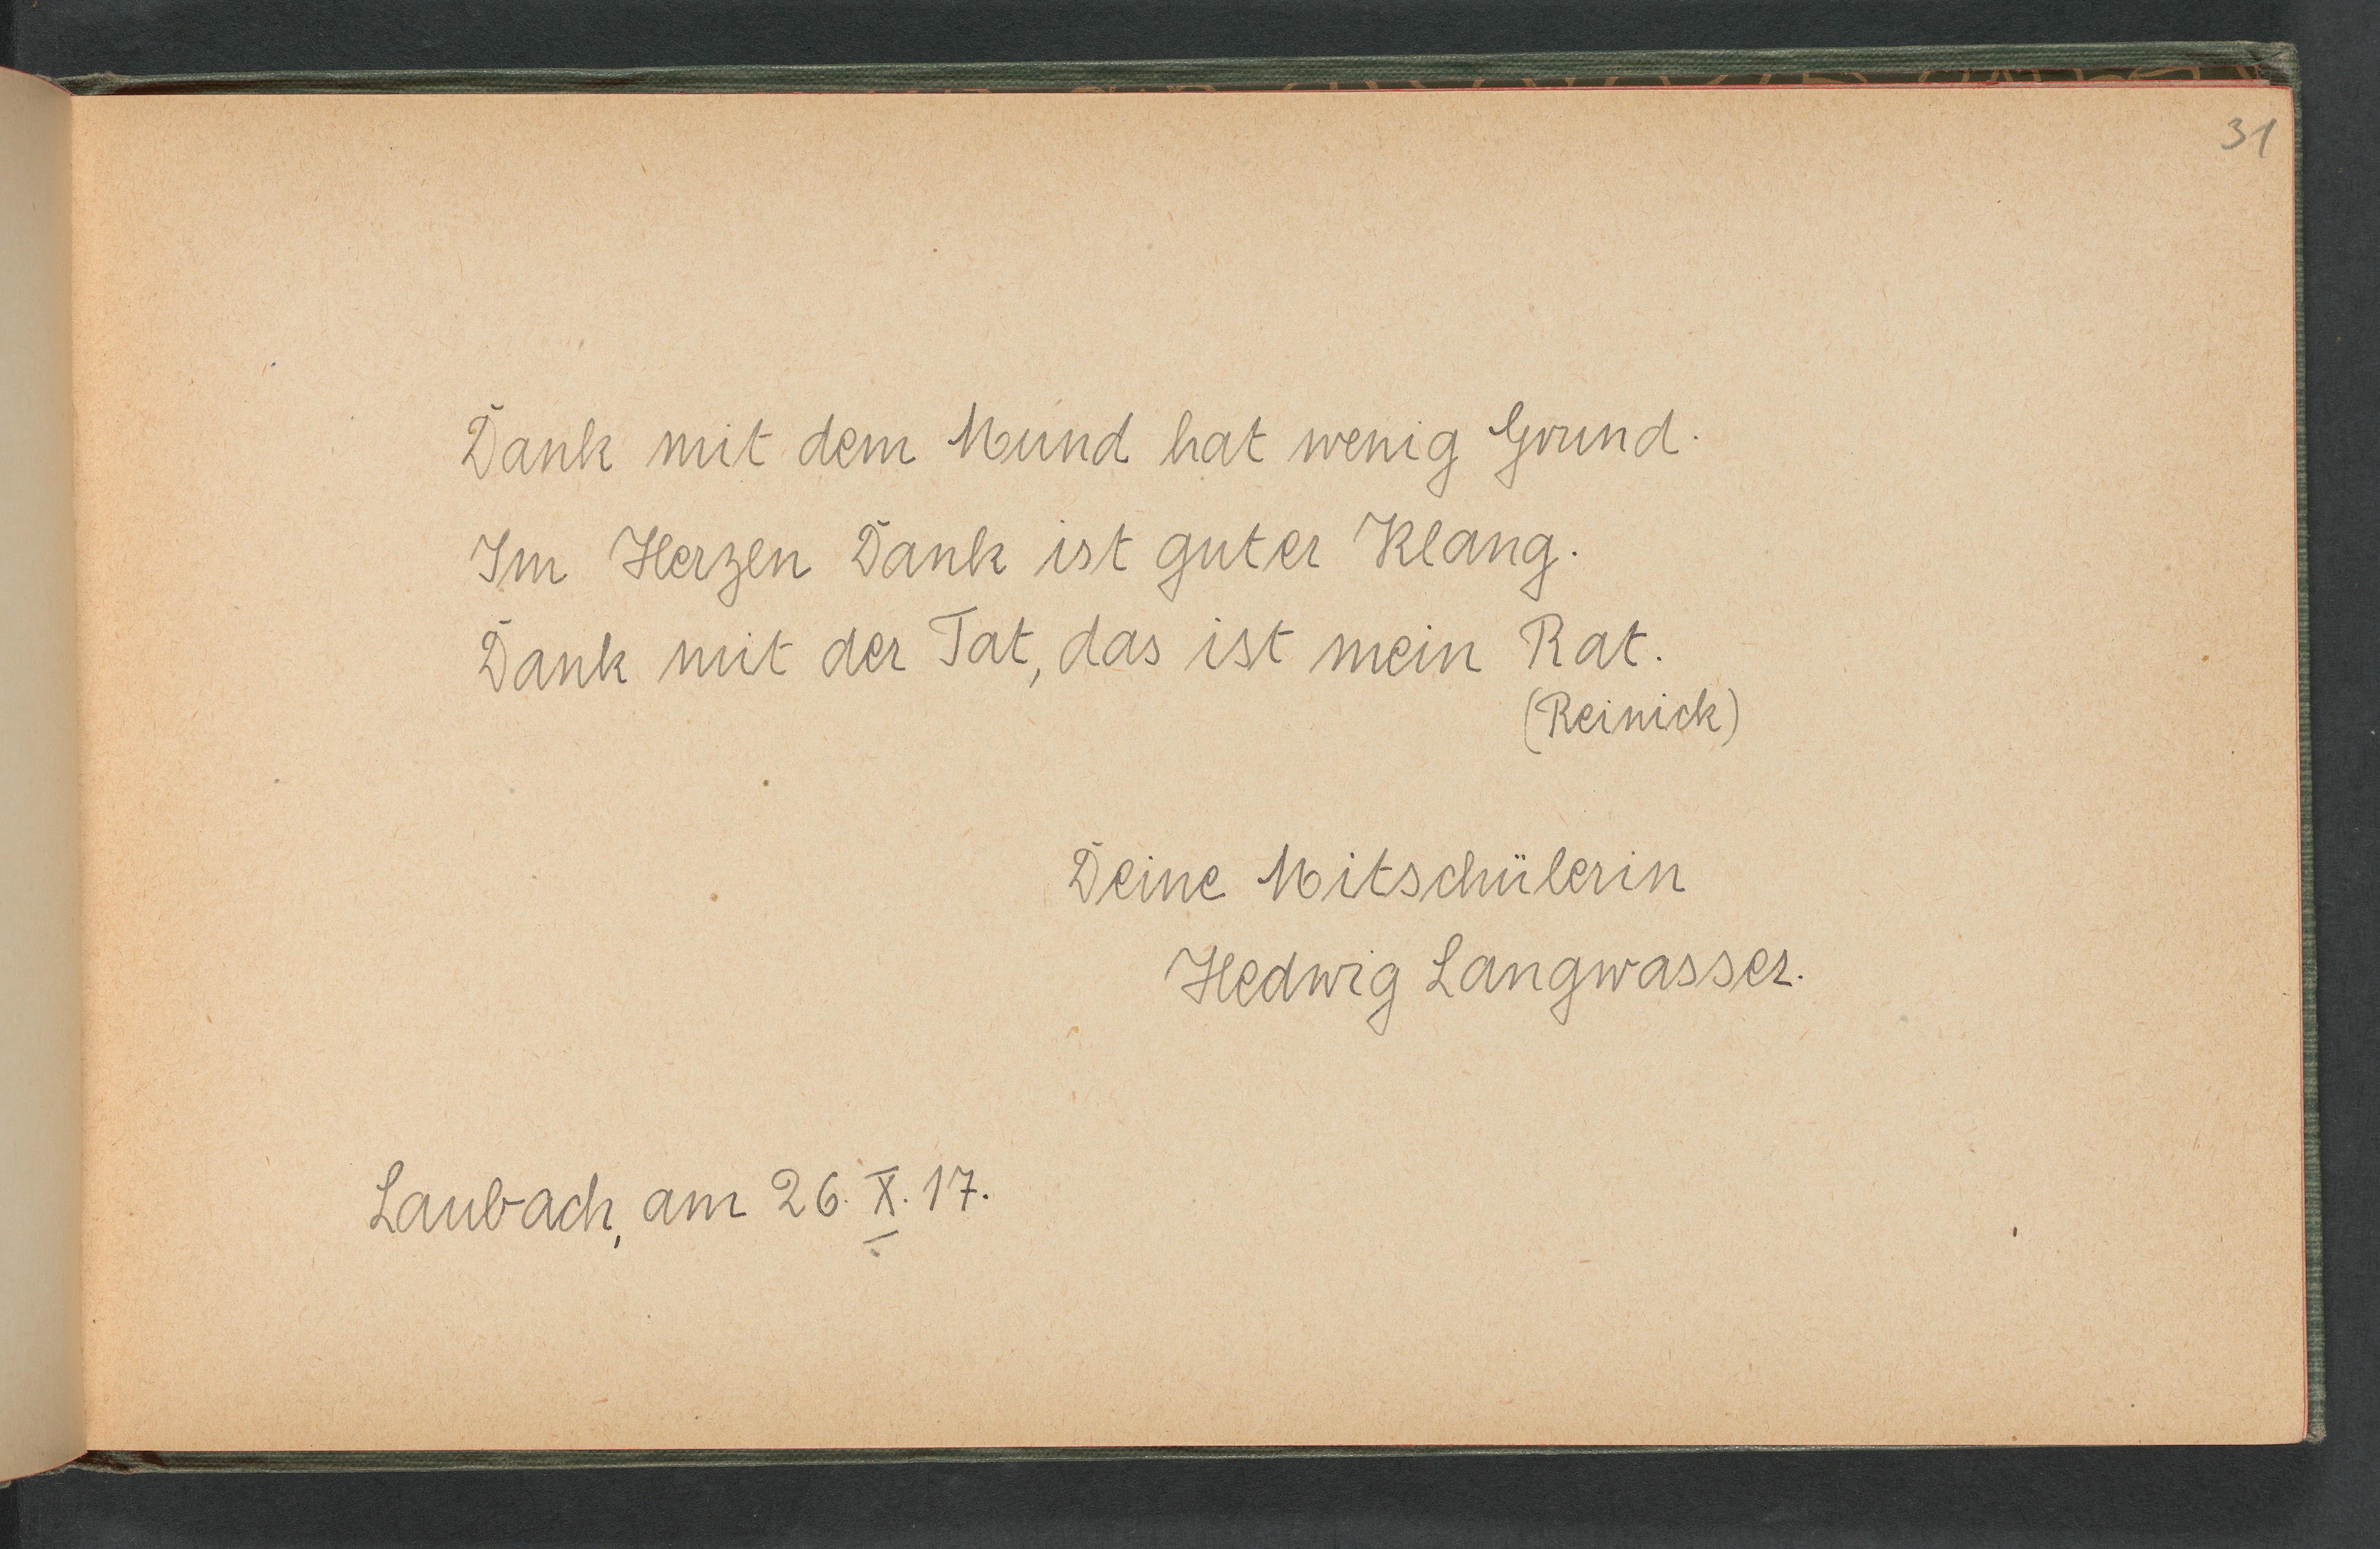 31
Dank mit dem Mund hat wenig Grund.
Im Herzen Dank ist guter Klang.
Dank mit der Tat, das ist mein Rat.
(Reinick)
Deine Mitschülerin
Hedwig Langwasser.
Laubach, am 26. X. 17.